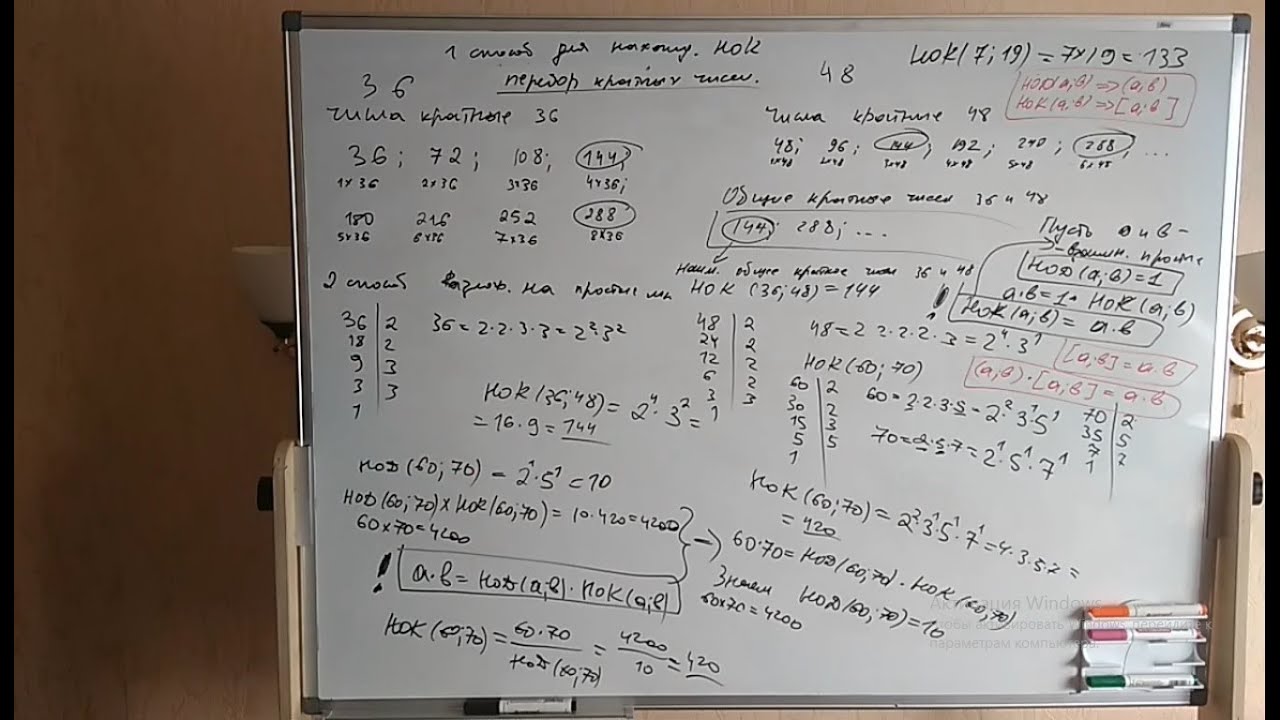 1 способ для нахожд. НОК
перебор кратных чисел.
36
48
НОК(7;19)=7×19=133
НОД(а;в)=>(а;в)
НОК(а;в)=>[а;в]
числа кратные 36
36; 72; 108; 144;
1×36 2×36 3×36 4×36;
180 216 252 288
5×36 6×36 7×36 8×36
числа кратные 48
48; 96; 144; 192; 240; 288; ...
1×48 2×48 3×48 4×48 5×48 6×48
Общие кратные чисел 36 и 48
144; 288; ...
Наим. общее кратное чисел 36 и 48
НОК (36;48)=144
Пусть а и в -
- взаимн. простые
НОД(а;в)=1
а·в=1·НОК(а;в)
! НОК(а;в)=а·в
[а;в]=а·в
(а,в)·[а;в]=а·в
2 способ на простые мн
36 | 2
18 | 2
9 | 3
3 | 3
1
36=2·2·3·3=2²·3²
48 | 2
24 | 2
12 | 2
6 | 2
3 | 3
1
48=2·2·2·2·3=2⁴·3¹
НОК(36;48)=2⁴·3²=
=16·9=144
НОК(60;70)
60 | 2
30 | 2
15 | 3
5 | 5
1
60=2·2·3·5=2²·3¹·5¹
70=2·5·7=2¹·5¹·7¹
70 | 2
35 | 5
7 | 7
1
НОК(60;70)=2²·3¹·5¹·7¹=4·3·5·7=
=420
НОД(60;70)=2¹·5¹=10
НОД(60;70)×НОК(60;70)=10·420=4200
60×70=4200
! а·в=НОД(а;в)·НОК(а;в)
60·70=НОД(60;70)·НОК(60;70)
Знаем НОД(60;70)=10
60×70=4200
НОК(60;70)=60·70/НОД(60;70)=4200/10=420
Активация Windows
Чтобы активировать Windows, перейдите к
параметрам компьютера.